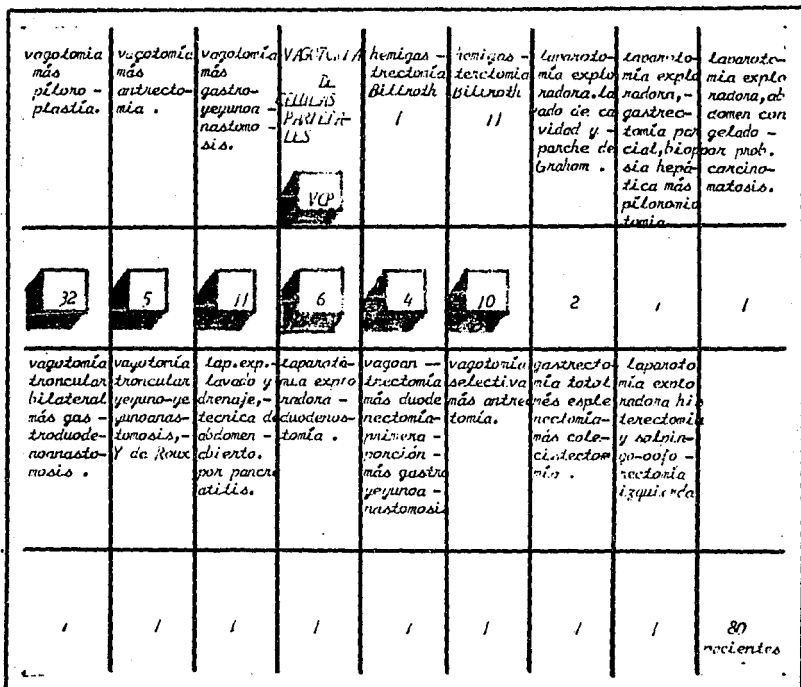 vagotomia
más
píloro -
plastía.
vagotomía
más
antrecto-
mia .
vagotomía
más
gastro-
yeyunoa -
nastomo -
sis.
VAGOTOMIA
DE
CELULAS
PARIETA-
LES
VCP
hemigas -
trectomía
Billroth
I
hemigas -
terctomia
Billroth
II
laparoto-
mía explo
radora.la
ado de ca
vidad y -
parche de
Graham .
laparoto-
mía explo
radora,-
gastrec-
tomía par
cial,biop
sia hepá-
tica más
piloromio
tomia
laparoto-
mia explo
radora,ab
domen con
gelado -
por prob.
carcino-
matosis.
32
5
11
6
4
10
2
1
1
vagotomía
troncular
bilateral
más gas -
troduode-
noanasto-
mosis .
vagotomía
troncular
yeyuno-ye
yunoanas-
tomosis,-
Y de Roux
lap.exp.-
lavado y
drenaje,-
tecnica de
abdomen -
abierto.
por pancre
atitis.
laparoto-
mia explo
radora -
duodenos-
tomía .
vagoan --
trectomía
más duode
nectomía-
primera -
porción -
más gastro
yeyunoa -
nastomosis
vagotomía
selectiva
más antrec
tomía.
gastrecto
mía total
més esple
nectomía-
más cole-
cistectom
mía .
laparoto
mía explo
radora his
terectomia
y salpin-
go-oofo -
rectomía
izquierda
1
1
1
1
1
1
1
1
80
pacientes